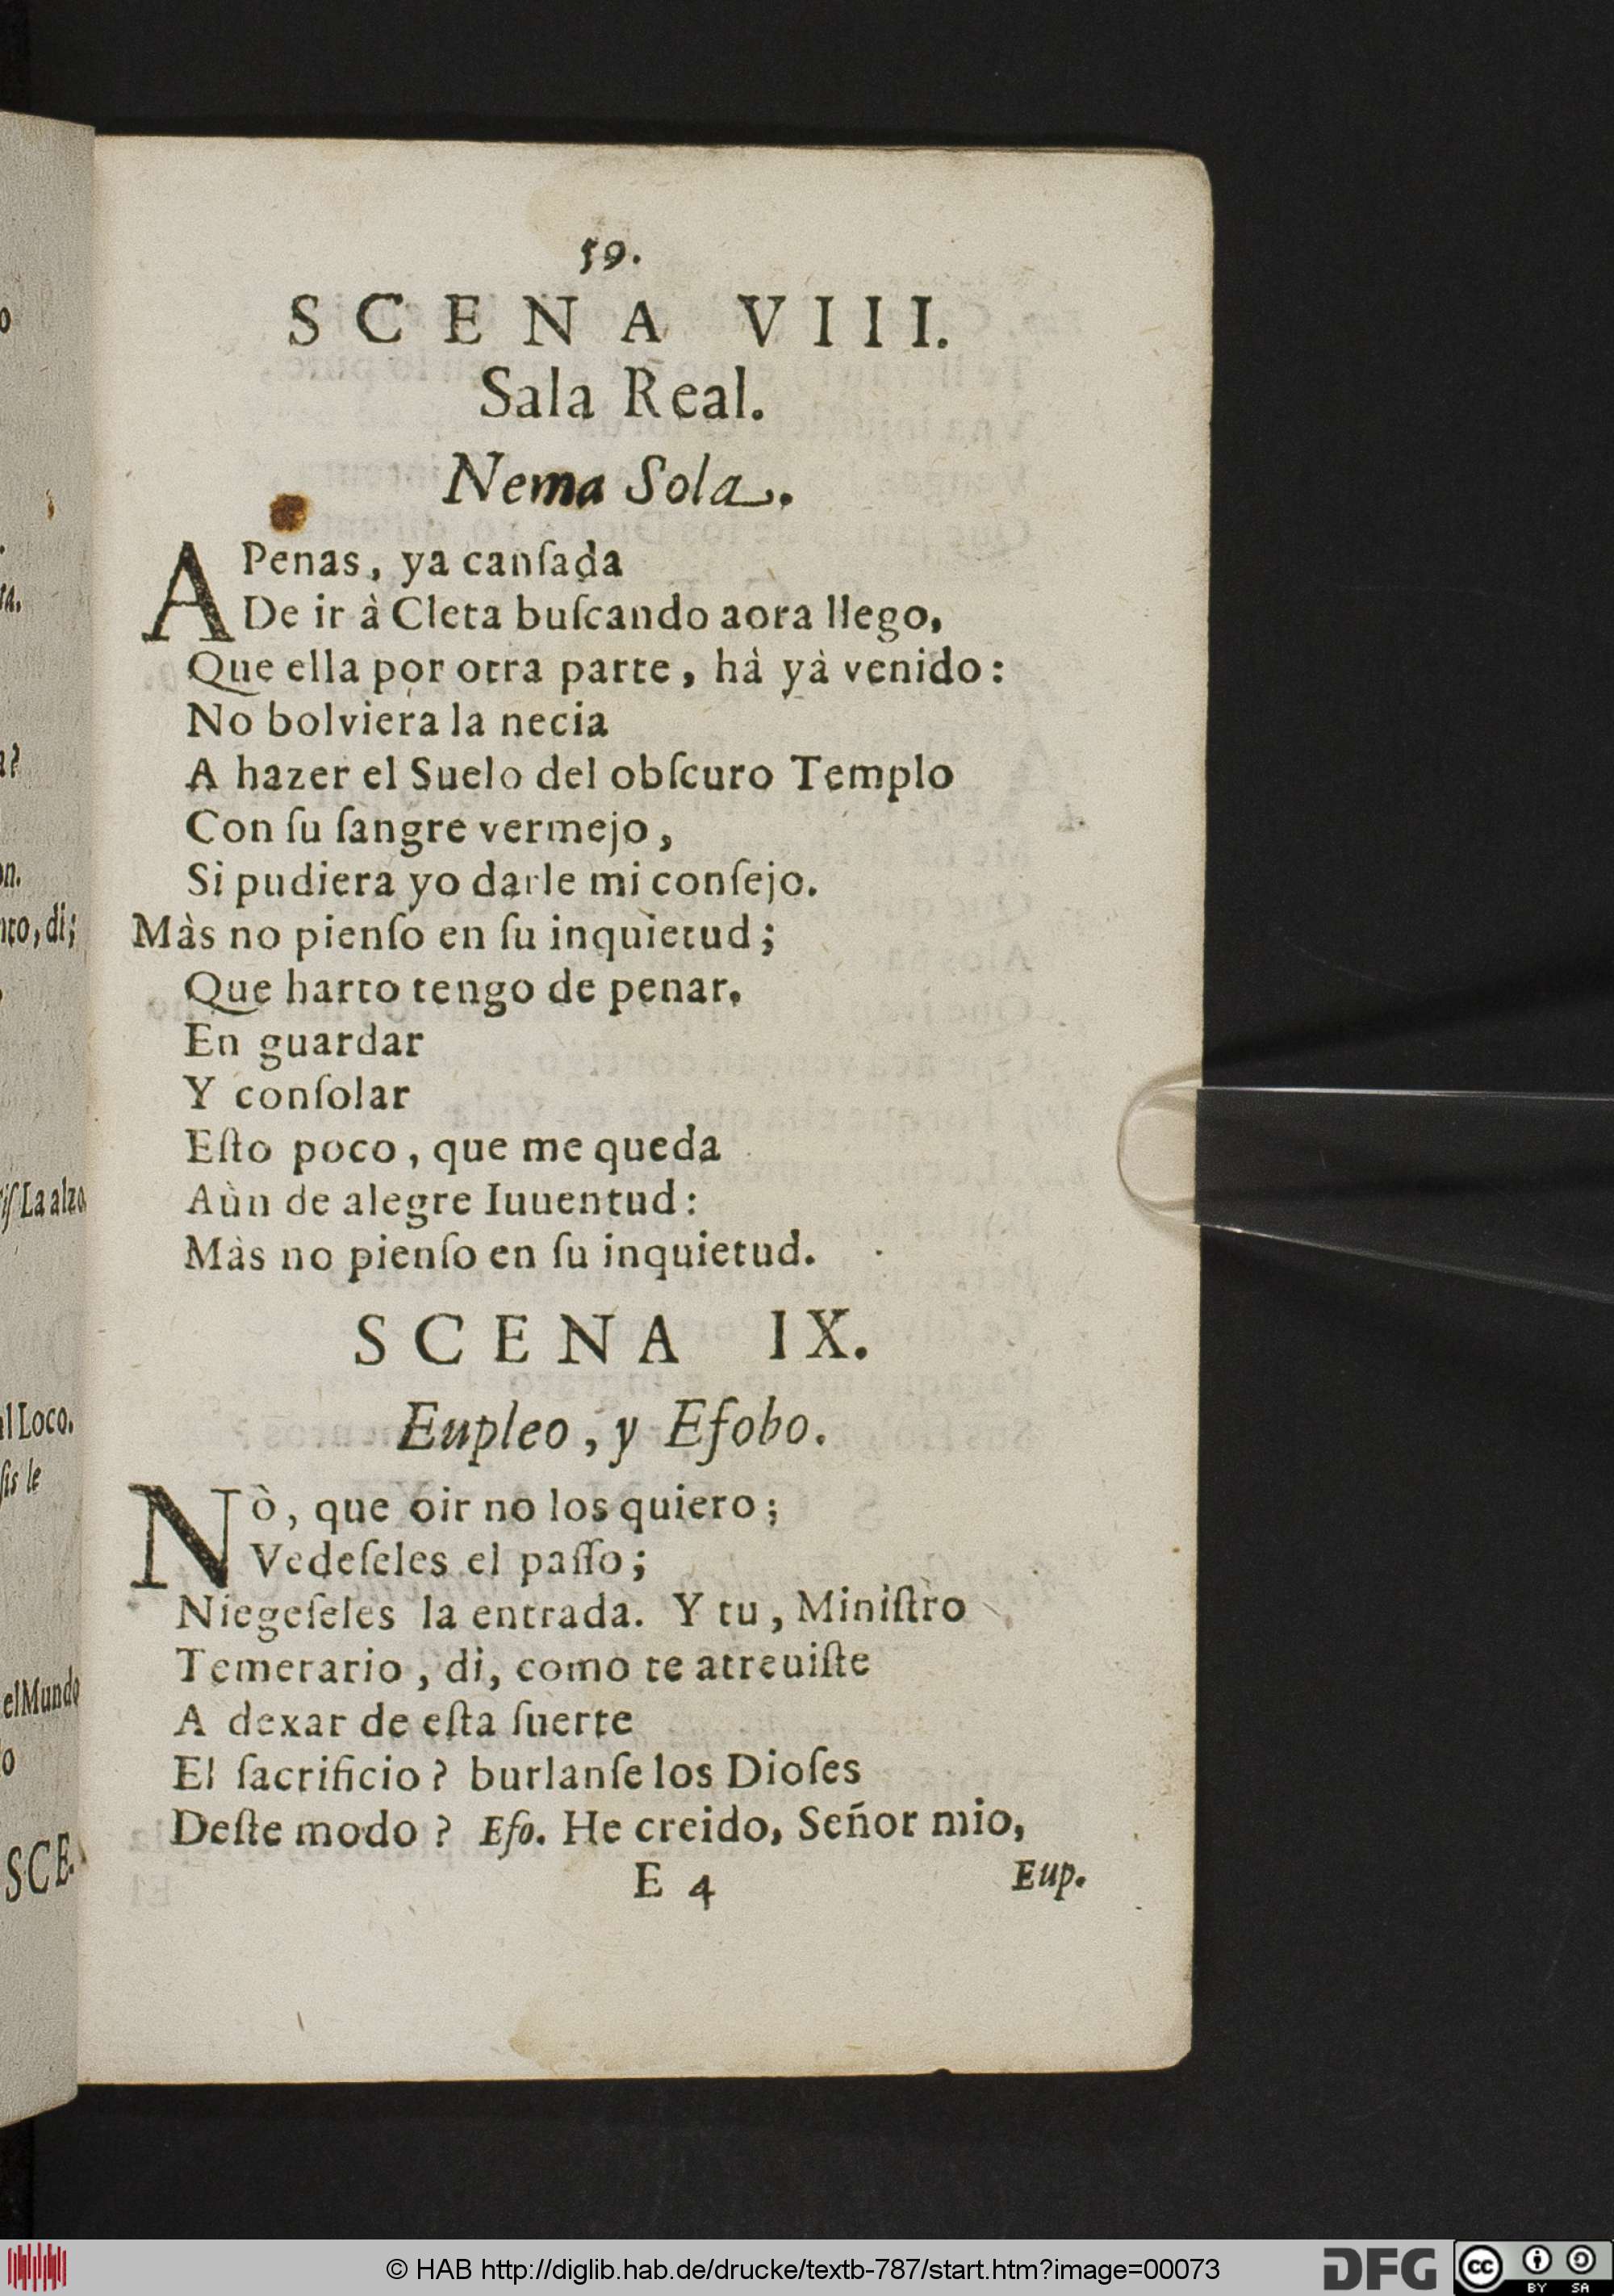 59.
SCENA VIII.
Sala Real.
Nema Sola.
APenas, ya canſada
De ir à Cleta buſcando aora llego,
Que ella por otra parte, hà yà venido:
No bolviera la necia
A hazer el Suelo del obſcuro Templo
Con ſu ſangre vermejo,
Si pudiera yo darle mi conſejo.
Màs no pienſo en ſu inquietud;
Que harto tengo de penar,
En guardar
Y conſolar
Eſto poco, que me queda
Aùn de alegre Iuuentud:
Màs no pienſo en ſu inquietud.
SCENA IX.
Eupleo, y Efobo.
NÒ, que oir no los quiero;
Vedeſeles el paſſo;
Niegeſeles la entrada. Y tu, Miniſtro
Temerario, di, como te atreuiſte
A dexar de eſta ſuerte
El ſacrificio? burlanſe los Dioſes
Deſte modo? Efo. He creido, Señor mio,
E 4
Eup.
nto, di;
La alzo
al Loco.
ſis le
el Mundo
SCE.
© HAB http://diglib.hab.de/drucke/textb-787/start.htm?image=00073
DFG
cc
BY SA